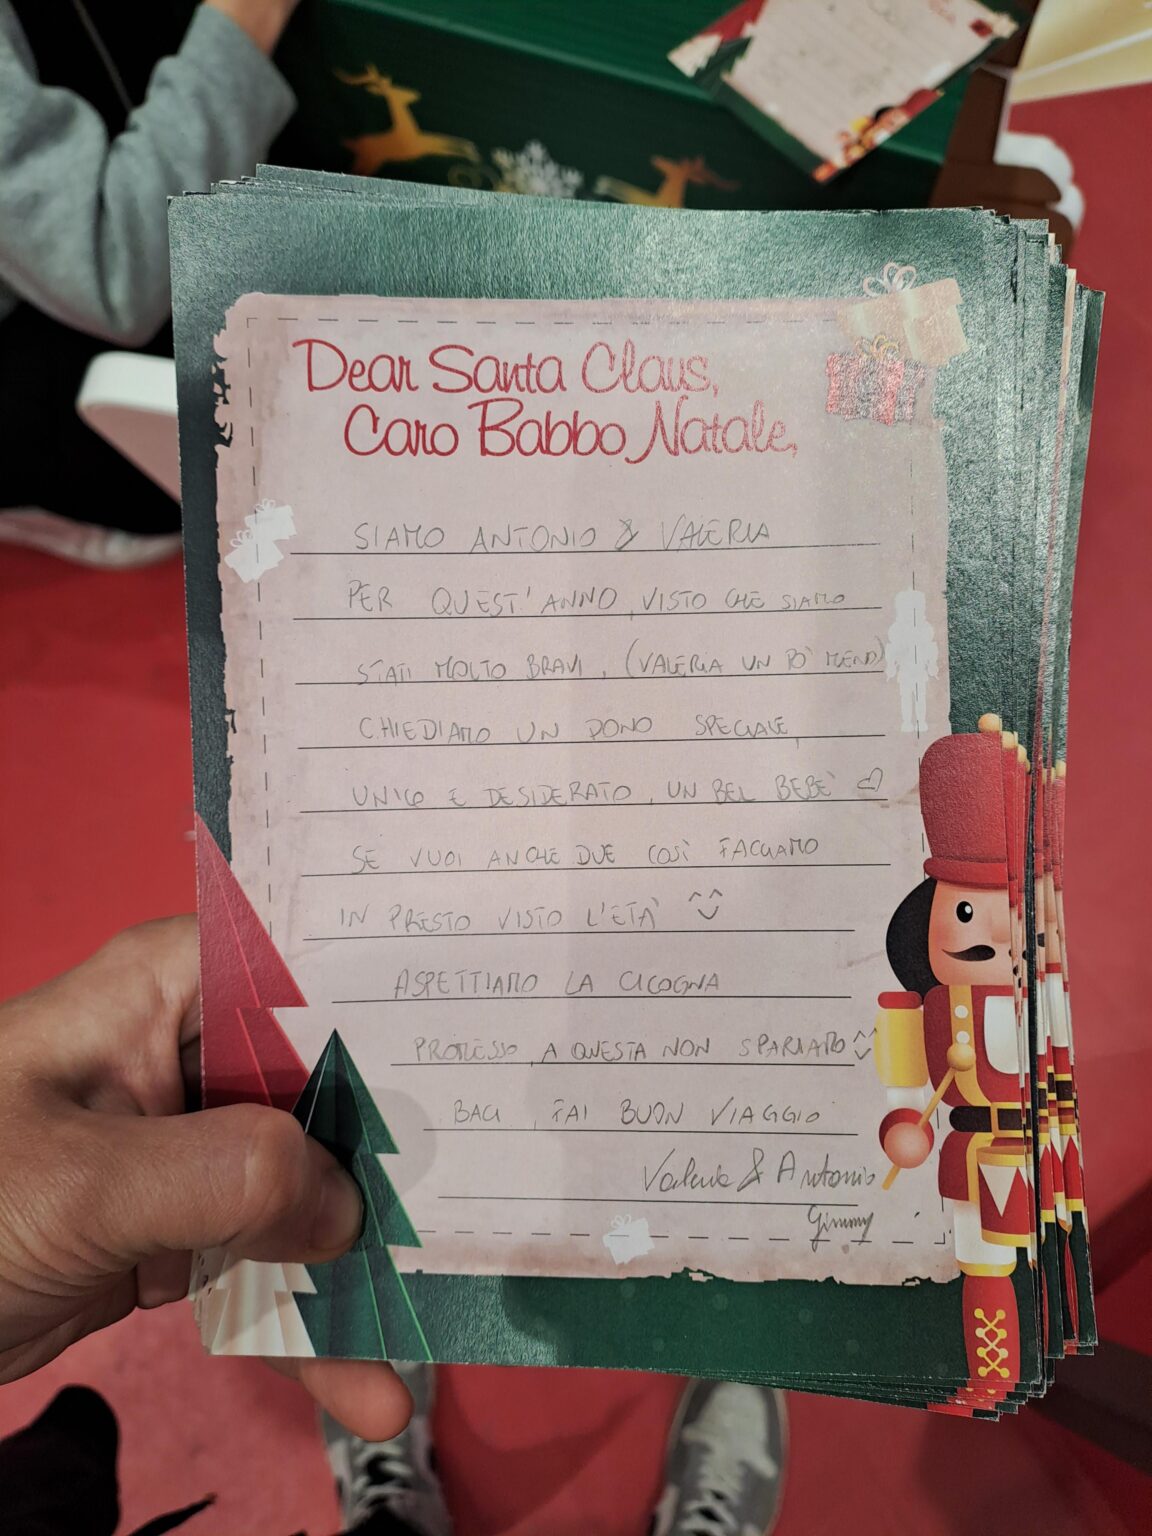 Dear Santa Claus,
Caro Babbo Natale,
SIAMO ANTONIO & VALERIA
PER QUEST'ANNO, VISTO CHE SIAMO
STATI MOLTO BRAVI, (VALERIA UN PO' MENO)
CHIEDIAMO UN DONO SPECIALE,
UNICO E DESIDERATO, UN BEL BEBE' ♡
SE VUOI ANCHE DUE COSÌ FACCIAMO
IN PRESTO VISTO L'ETA' ^^
ASPETTIAMO LA CICOGNA
PROMESSO, A QUESTA NON SPARIAMO ^^
BACI, FAI BUON VIAGGIO
Valeria & Antonio
Gimmy